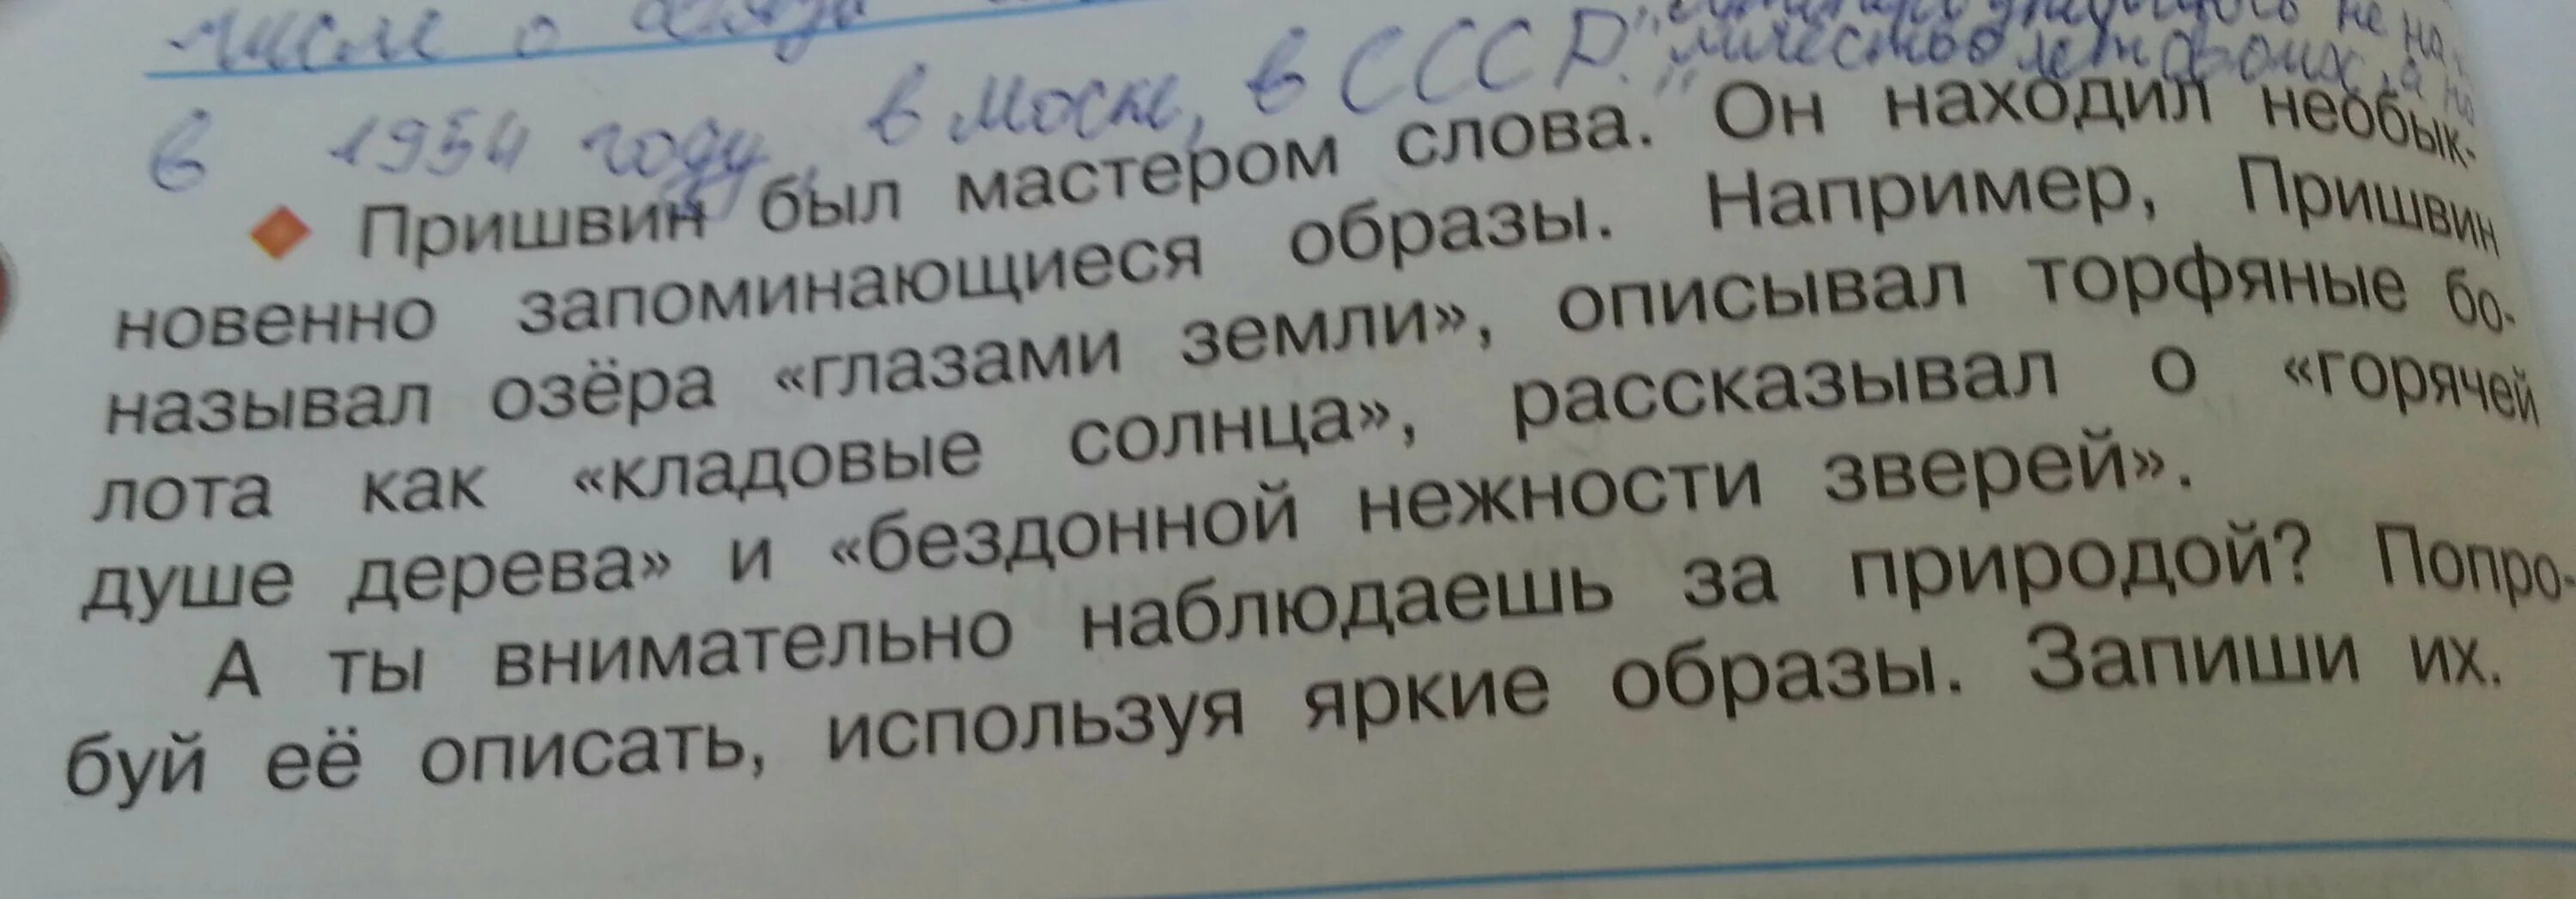 числе о
в 1954 году, в Москве, в СССР.
Пришвин был мастером слова. Он находил необык-
новенно запоминающиеся образы. Например, Пришвин
называл озёра «глазами земли», описывал торфяные бо-
лота как «кладовые солнца», рассказывал о «горячей
душе дерева» и «бездонной нежности зверей».
А ты внимательно наблюдаешь за природой? Попро-
буй её описать, используя яркие образы. Запиши их.